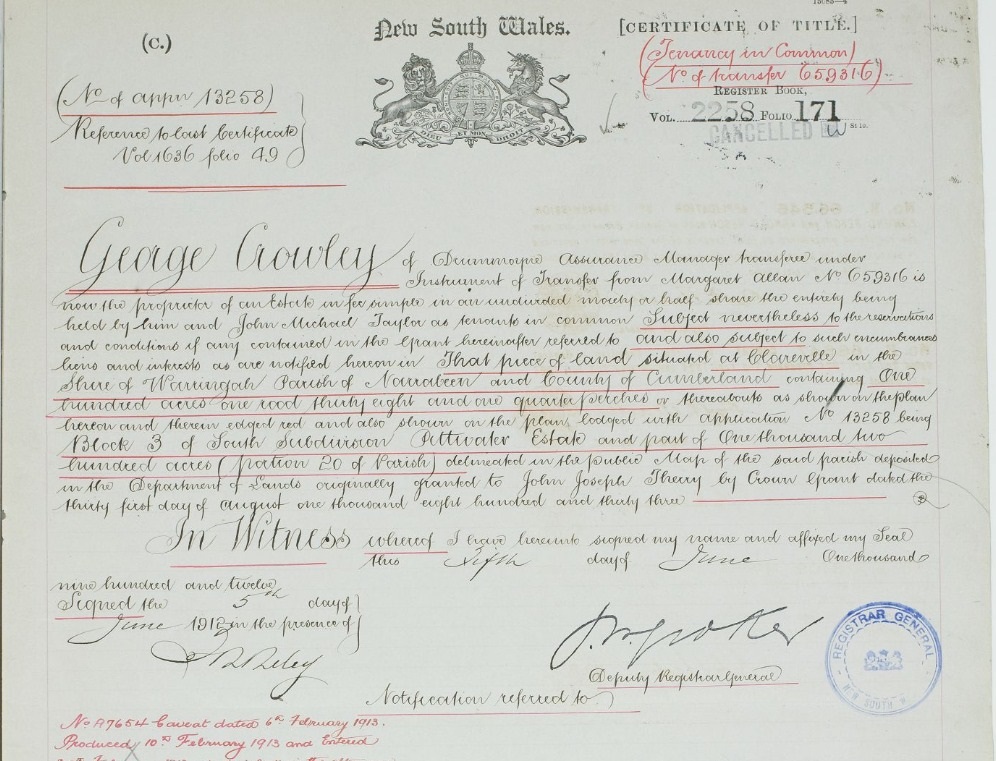 (C.)
New South Wales.
[CERTIFICATE OF TITLE.]
(Tenancy in Common)
(No of transfer 659316)
REGISTER BOOK,
VOL. 2258 FOLIO 171
CANCELLED
(No of appn 13258)
Reference to last Certificate
Vol 1636 folio 49
George Crowley of Drummoyne Assurance Manager transferee under
Instrument of Transfer from Margaret Allan No 659316 is
now the proprietor of an Estate in fee simple in an undivided moiety or half share the entirety being
held by him and John Michael Taylor as tenants in common Subject nevertheless to the reservations
and conditions if any contained in the Grant hereinafter referred to and also subject to such encumbrances
liens and interests as are notified hereon in That piece of land situated at Clareville in the
Shire of Warringah Parish of Narrabeen and County of Cumberland containing One
hundred acres one rood thirty eight and one quarter perches or thereabouts as shown on the plan
hereon and therein edged red and also shown on the plan lodged with Application No 13258 being
Block 3 of South Subdivision Pittwater Estate and part of One thousand two
hundred acres (portion 20 of Parish) delineated in the public Map of the said parish deposited
in the Department of Lands originally granted to John Joseph Therry by Crown Grant dated the
thirty first day of August one thousand eight hundred and thirty three
In Witness whereof I have hereunto signed my name and affixed my Seal
this Fifth day of June One thousand
nine hundred and twelve
Signed the 5th day of
June 1912 in the presence of
Deputy Registrar General
REGISTRAR GENERAL
NEW SOUTH W
Notification referred to
No A7654 Caveat dated 6th February 1913.
Produced 10th February 1913 and Entered